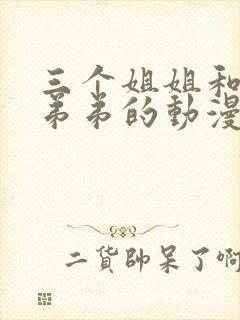 三个姐姐和
弟弟的動漫
二貨帥呆了啊